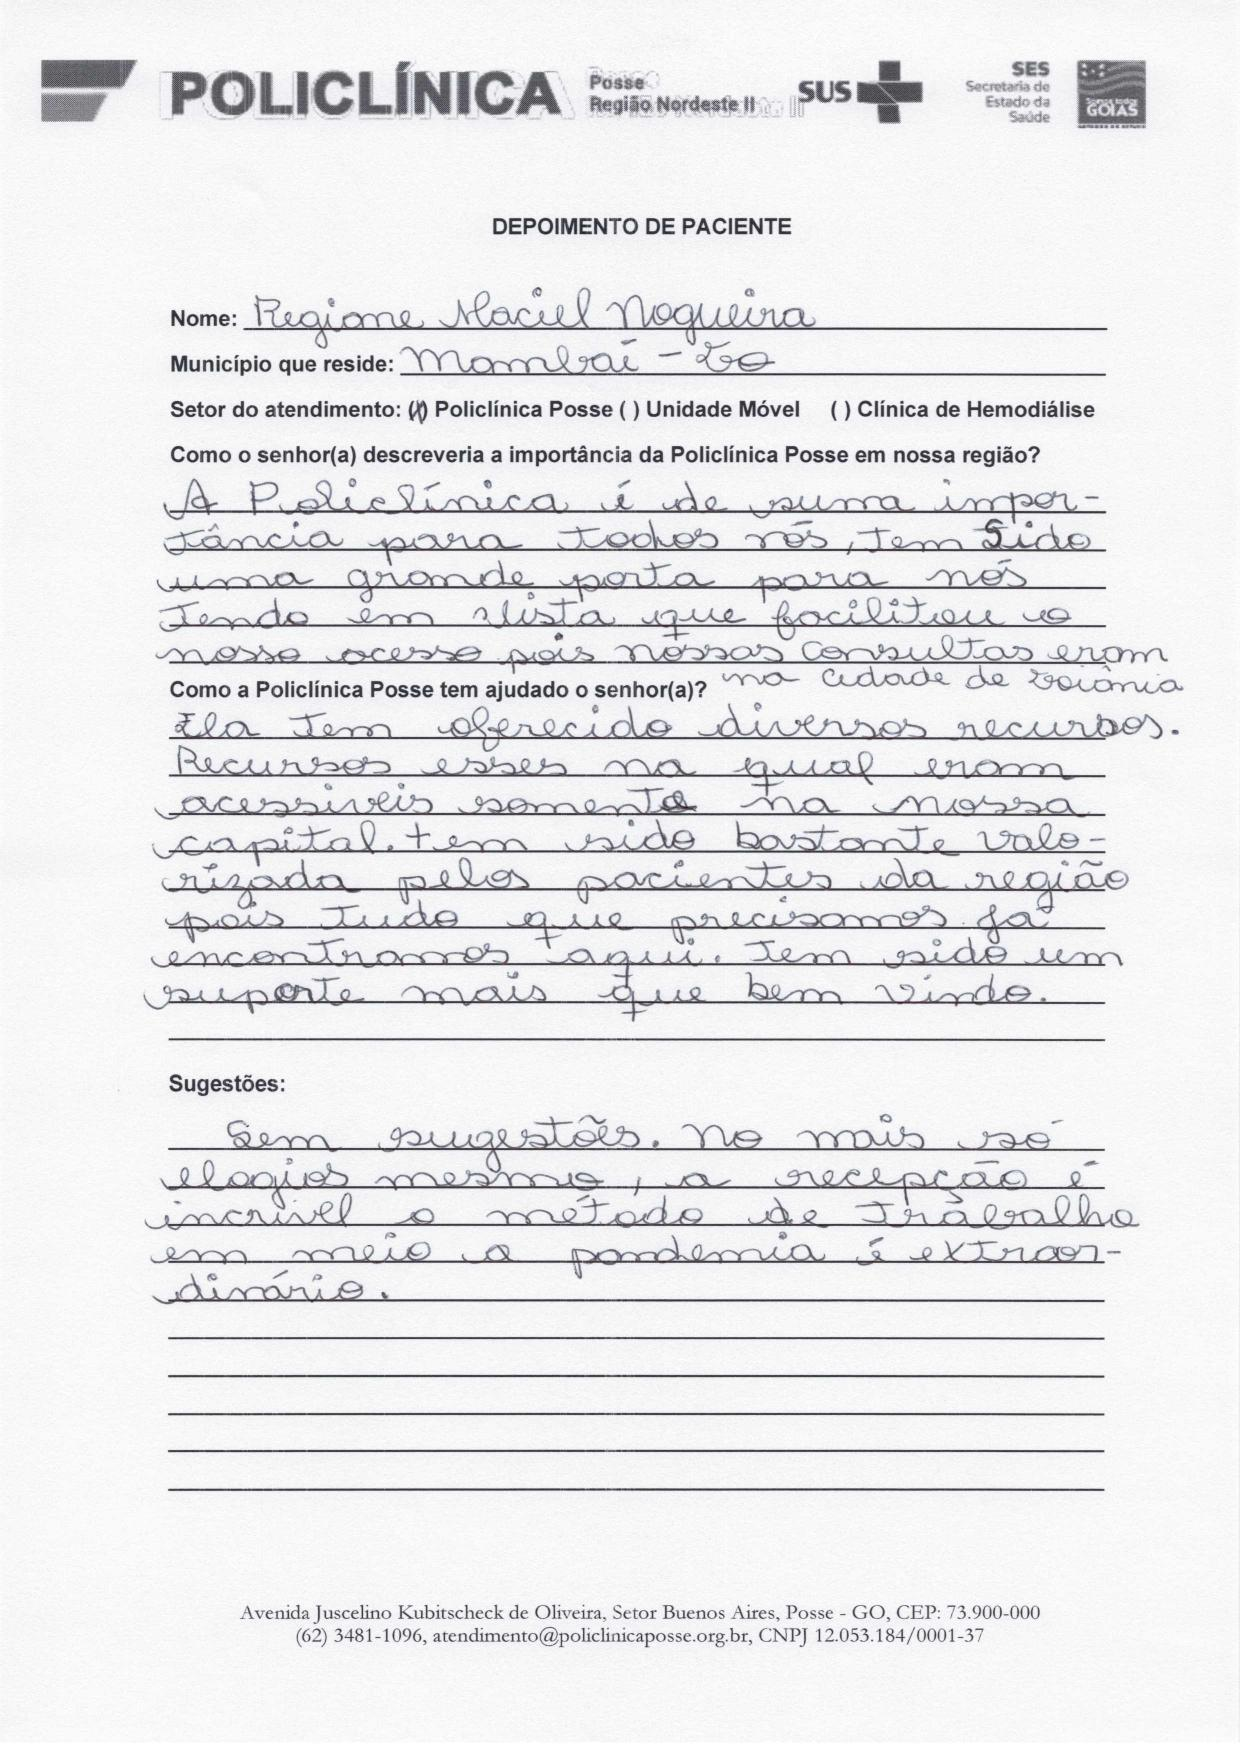 POLICLÍNICA Posse Região Nordeste II SUS SES Secretaria de Estado da Saúde GOIÁS
DEPOIMENTO DE PACIENTE
Nome: Regiane Maciel Nogueira
Município que reside: Mambaí - Go
Setor do atendimento: (X) Policlínica Posse ( ) Unidade Móvel ( ) Clínica de Hemodiálise
Como o senhor(a) descreveria a importância da Policlínica Posse em nossa região?
A Policlínica é de suma impor-
tância para todos nós, tem Sido
uma grande porta para nós
Tendo em vista que facilitou o
nosso acesso pois nossas consultas eram
na cidade de Goiânia
Como a Policlínica Posse tem ajudado o senhor(a)?
Ela tem oferecido diversos recursos.
Recursos esses na qual eram
acessiveis somente na nossa
capital. tem sido bastante valo-
rizada pelos pacientes da região
pois tudo que precisamos já
encontramos aqui. Tem sido um
suporte mais que bem vindo.
Sugestões:
Sem sugestões. No mais só
elogios mesmo, a recepção é
incrível o método de trabalho
em meio a pandemia é extraor-
dinário.
Avenida Juscelino Kubitscheck de Oliveira, Setor Buenos Aires, Posse - GO, CEP: 73.900-000
(62) 3481-1096, atendimento@policlinicaposse.org.br, CNPJ 12.053.184/0001-37